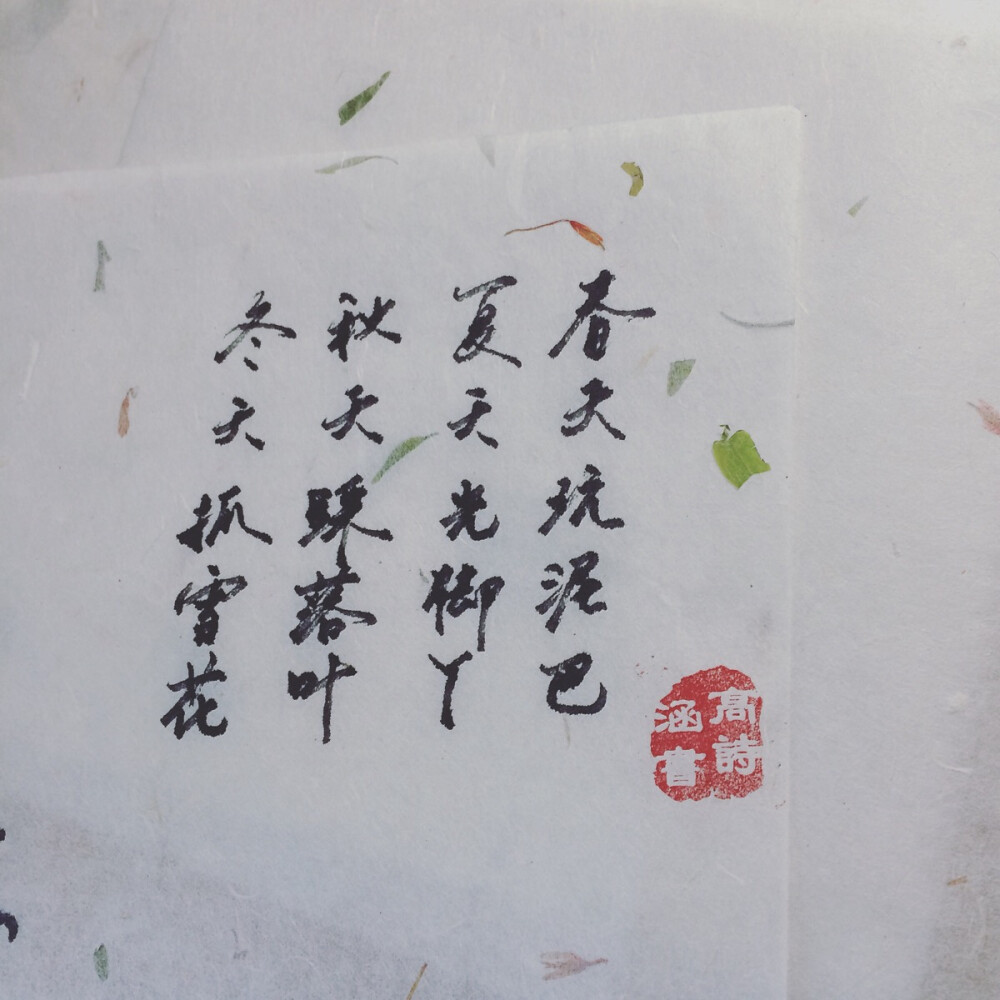 春天玩泥巴
夏天光脚丫
秋天踩落叶
冬天抓雪花
高詩
涵書